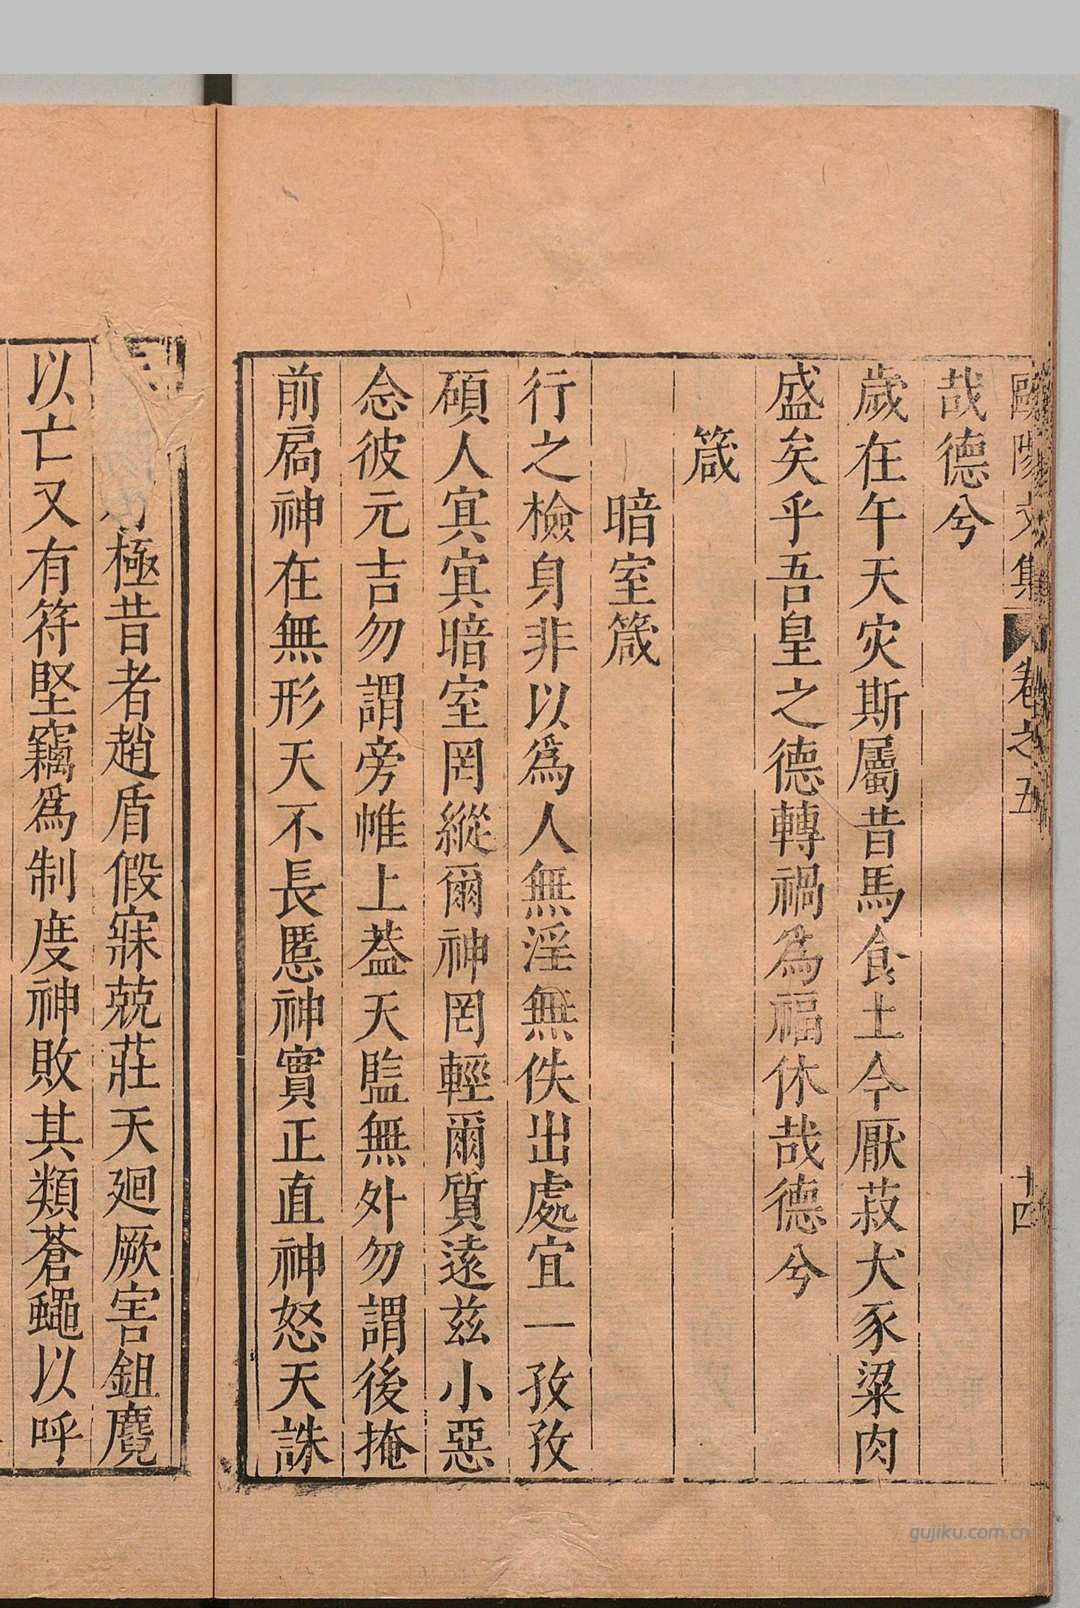 歐陽文集 卷之五 十四
哉德兮
歲在午天灾斯屬昔馬食土今厭菽犬豕粱肉
盛矣乎吾皇之德轉禍爲福休哉德兮
箴
暗室箴
行之檢身非以爲人無淫無佚出處宜一孜孜
碩人寘寘暗室罔縱爾神罔輕爾質遠玆小惡
念彼元吉勿謂旁帷上葢天監無外勿謂後掩
前扃神在無形天不長慝神實正直神怒天誅
極昔者趙盾假寐兢莊天廻厥害鉏麑
以亡又有符堅竊爲制度神敗其類蒼蠅以呼
gujiku.com.cn